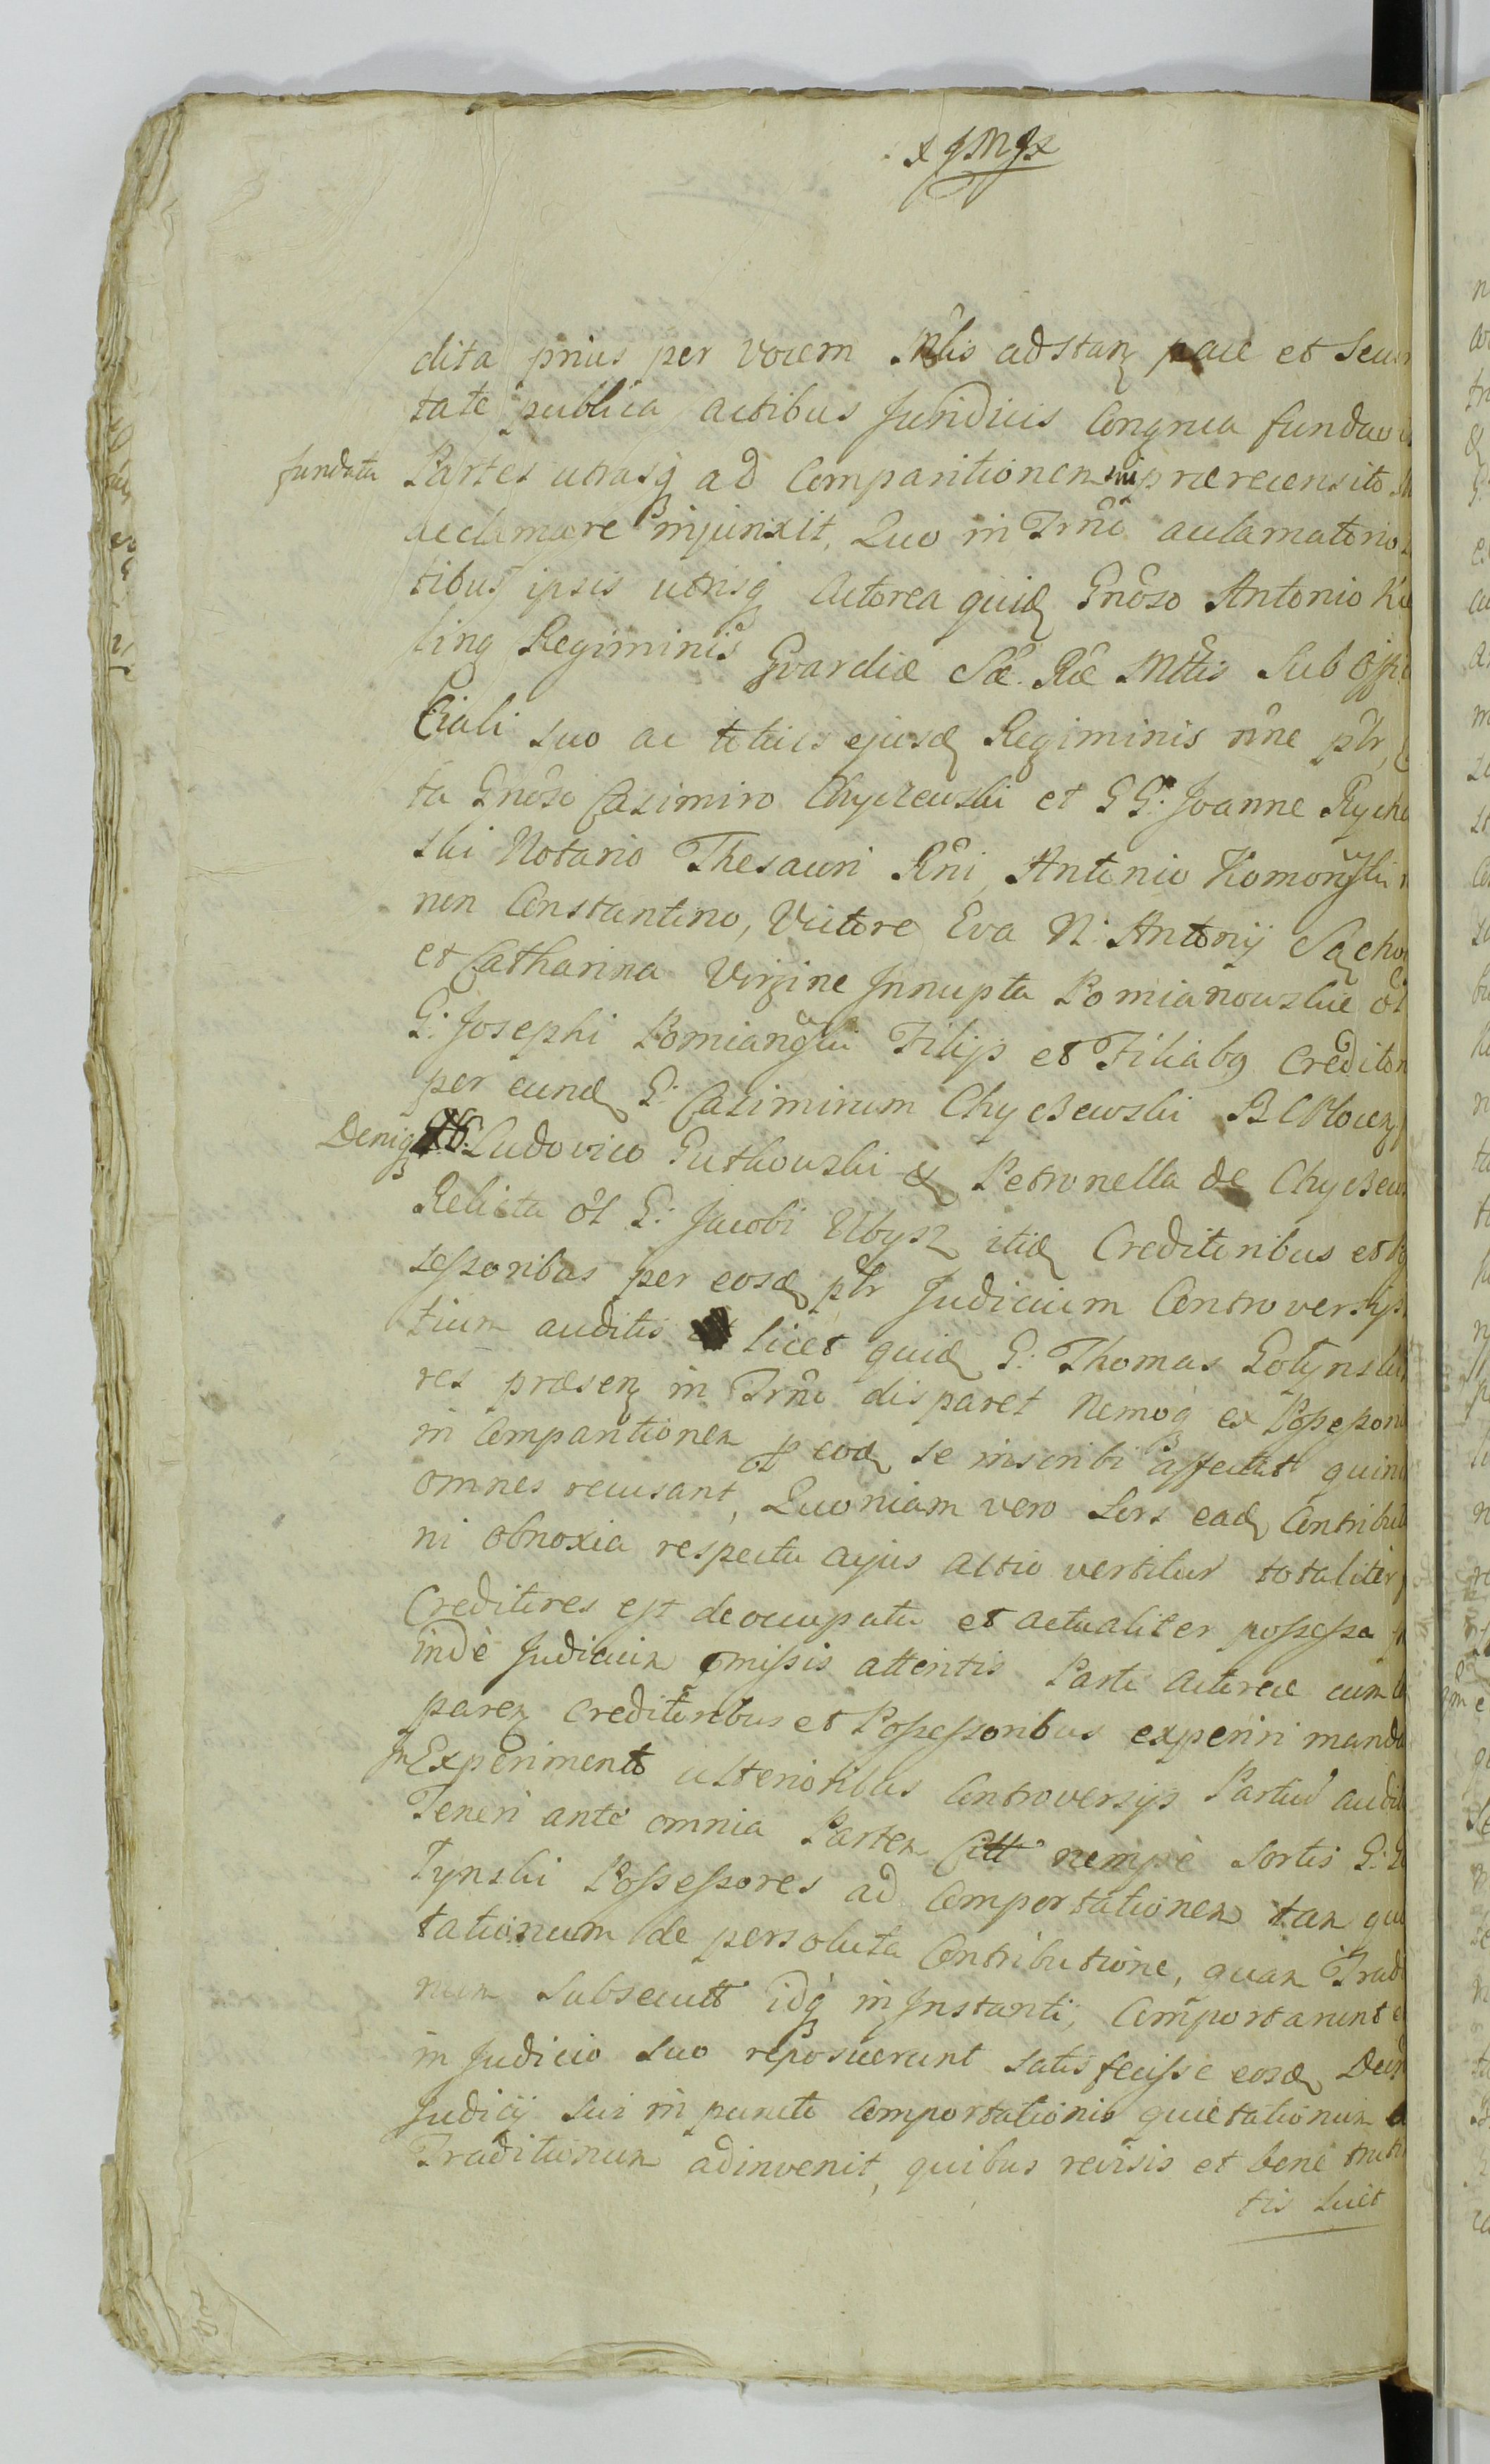 x JMJ x
dita prius per vocem Mlis adstan pace et Secur
tate publica actibus Juridicis Congrua fundav
fundata Partes utrasq ad Comparitionem in prærecensito
acclamare injunxit, Quo in Trno acclamatorio
tibus ipsis utrisq Actorea quid Gnoso Antonio
ling Regiminis Gvardiæ Sæ Ræ Mttis Sub Offi
Ciali suo ac totius ejusd Regiminis nne pttr,
ta Gnoso Casimiro Chyczewski et GG: Joanne Rych
ski Notario Thesauri Rni, Antonio Komorski
non Constantino, Victore Eva N: Antonij
et Catharina Virgine Innupta Pomianowskie ol
G: Josephi Pomianowski Filijs et Filiabq Creditor
per eund G: Casimirum Chyczewski B C Plocen
Deniq GG. Ludovico Gutkowski & Petronella de Chyczew
Relicta ol G: Jacobi Ubysz itid Creditoribus et Po
sessoribus per eosd pttr Judicium Controversijs
tium auditis licet quid G: Thomas Gotynski
res præsen in Trno disparet Nemoq ex Possessori
in Comparitionem p eod se inscribi affectat quin
omnes recusant, Quoniam vero Sors ead Contribut
ni obnoxia respectu cujus actio vertitur totaliter
Creditores est deoccupata et actualiter possessa
inde Judicium omissis attentis Parti Actoreæ cum
paren Creditoribus et Possessoribus experiri manda
In Experimento ulterioribus Controversijs Partium audit
Teneri ante omnia Partem Citt nempè Sortis G:
Tynski Possessores ad Comportationem tam qui
tationum de persoluta Contributione, quam Tradi
num Subsecutt idq in Instanti, Comportarunt
in Judicio suo reposuerunt satisfecisse eosd Decr
Judicij sui in puncto Comportationis quietationum
Traditionum adinvenit, quibus revisis et bene truti
tis Luct